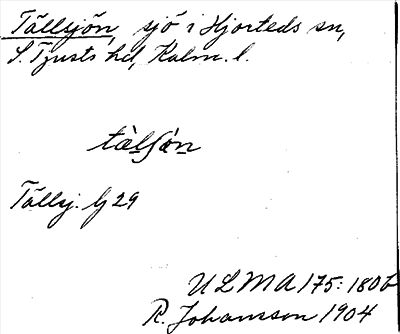 Tällsjön, sjö i Hjorteds sn,
S. Tjusts hd, Kalm. l.
tä̀lʃǿn
Tällsj. G 29
ULMA 175: 180 b
R. Johansson 1904